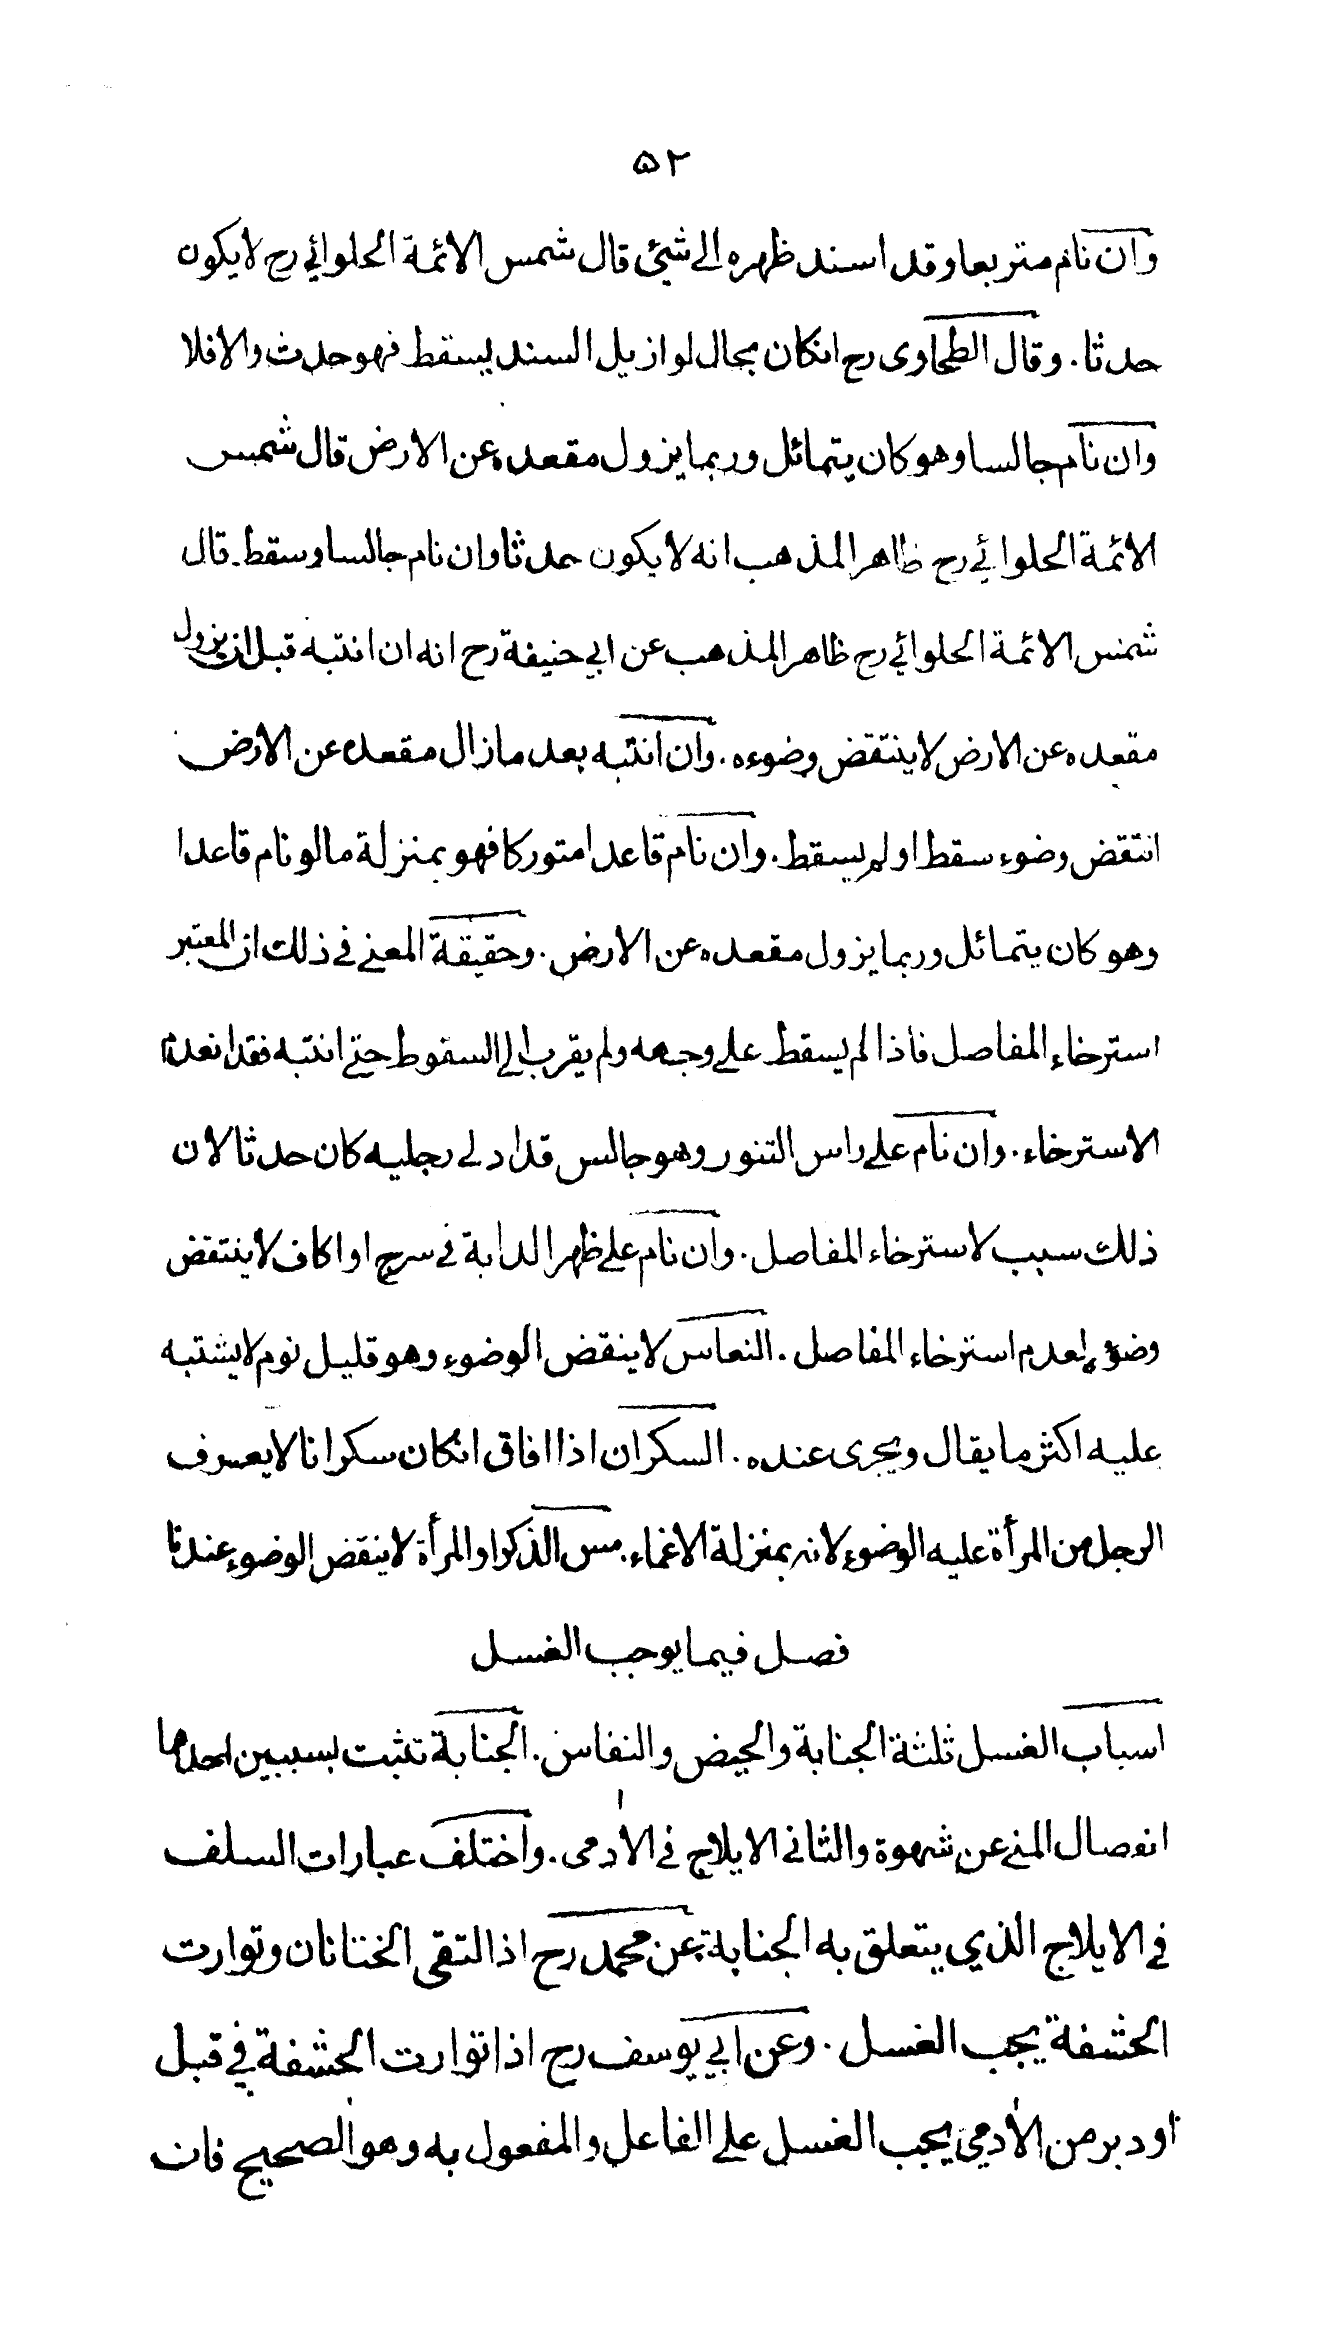 ۵۲
وان نام متربعا وقد اسند ظهره الى شئ قال شمس الائمة الحلوائي رح لا يكون
حدثا . وقال الطحاوى رح انكان بحال لو ازيل السند يسقط فهو حدث والا فلا
وان نام جالسا وهو كان يتمائل وربما يزول مقعده عن الارض قال شمس
الائمة الحلوائي رح ظاهر المذهب انه لا يكون حدثا وان نام جالسا وسقط قال
شمس الائمة الحلوائي رح ظاهر المذهب عن ابي حنيفة رح انه ان انتبه قبل ان يزول
مقعده عن الارض لا ينتقض وضوءه . وان انتبه بعد ما زال مقعده عن الارض
انتقض وضوء سقط او لم يسقط . وان نام قاعدا متوركا فهو بمنزلة ما لو نام قاعدا
وهو كان يتمائل وربما يزول مقعده عن الارض . وحقيقة المعنى في ذلك ان المعتبر
استرخاء المفاصل فاذا لم يسقط على وجهه ولم يقرب الى السقوط حتى انتبه فقد انعدم
الاسترخاء . وان نام على راس التنور وهو جالس قد ادلى رجليه كان حدثا لان
ذلك سبب لاسترخاء المفاصل . وان نام على ظهر الدابة في سرج او اكاف لا ينتقض
وضوء لعدم استرخاء المفاصل . النعاس لا ينقض الوضوء وهو قليل نوم لا يشتبه
عليه اكثر ما يقال ويجرى عنده . السكران اذا افاق انكان سكرانا لا يعرف
الرجل من المرأة عليه الوضوء لانه بمنزلة الاغماء . مس الذكر او المرأة لا ينقض الوضوء عندنا
فصل فيما يوجب الغسل
اسباب الغسل ثلثة الجنابة والحيض والنفاس . الجنابة تثبت بسببين احدهما
انفصال المني عن شهوة والثاني الايلاج في الأدمى . واختلف عبارات السلف
في الايلاج الذي يتعلق به الجنابة عن محمد رح اذا التقى الختانان وتوارت
الحشفة يجب الغسل . وعن ابي يوسف رح اذا توارت الحشفة في قبل
او دبر من الأدمي يجب الغسل على الفاعل والمفعول به وهو الصحيح فان